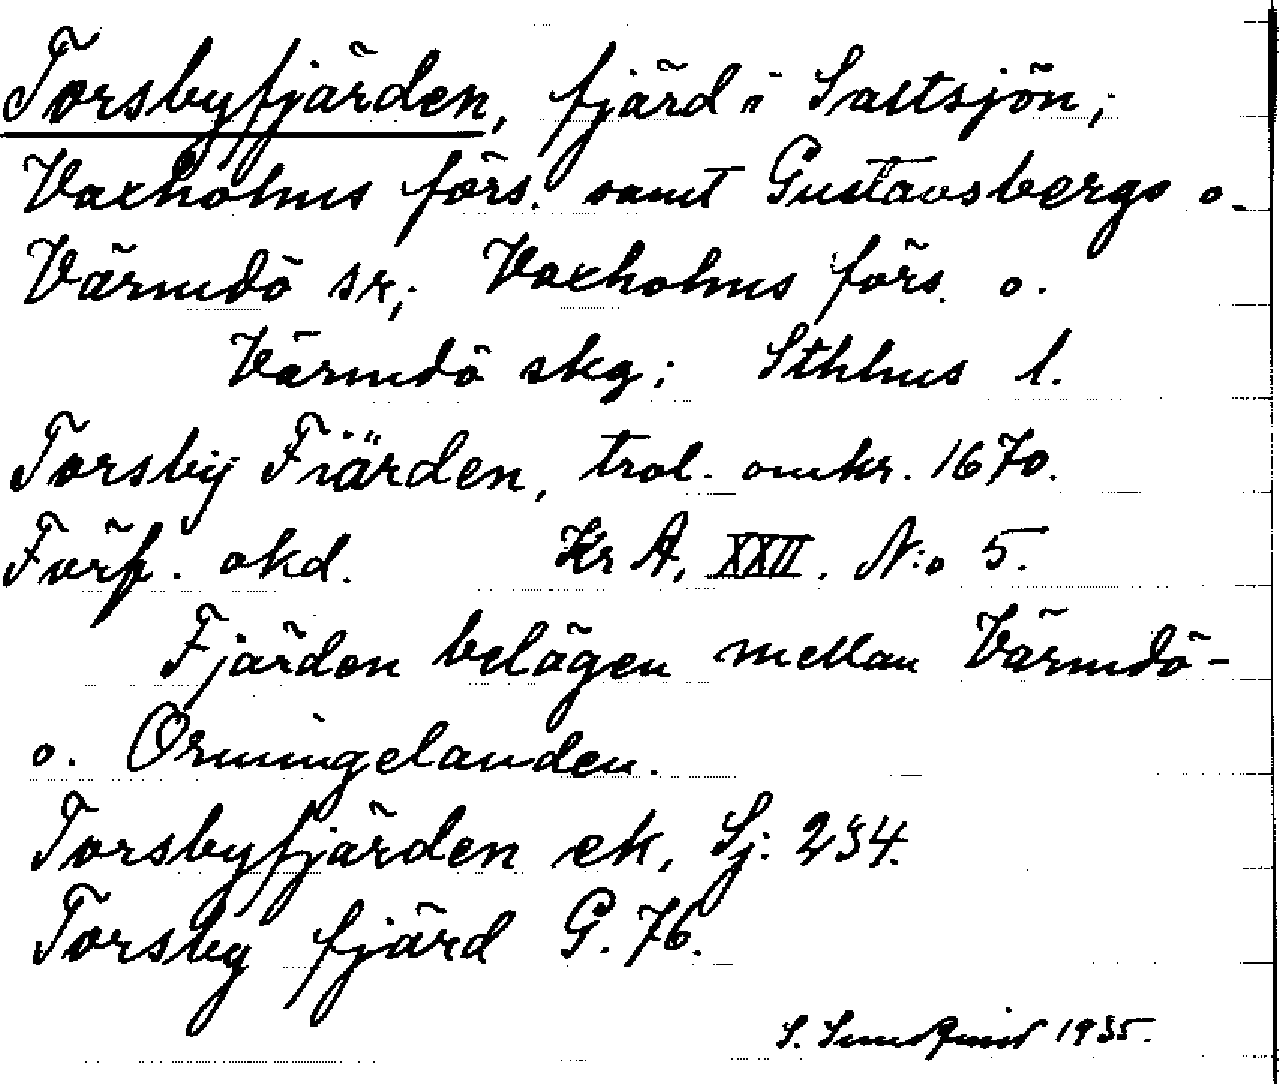 Torsbyfjärden, fjärd i Saltsjön;
Vaxholms förs. samt Gustavsbergs o.
Värmdö sr; Vaxholms förs. o.
Värmdö skg; Sthlms l.
Torsby Fiärden, trol. omkr. 1670.
Förf. okd. Kr A, XXII. N:o 5.
Fjärden belägen mellan Värmdö-
o. Ormingelanden.
Torsbyfjärden ek, Sj. 234.
Torsby fjärd G. 76.
S. Sundqvist 1935.